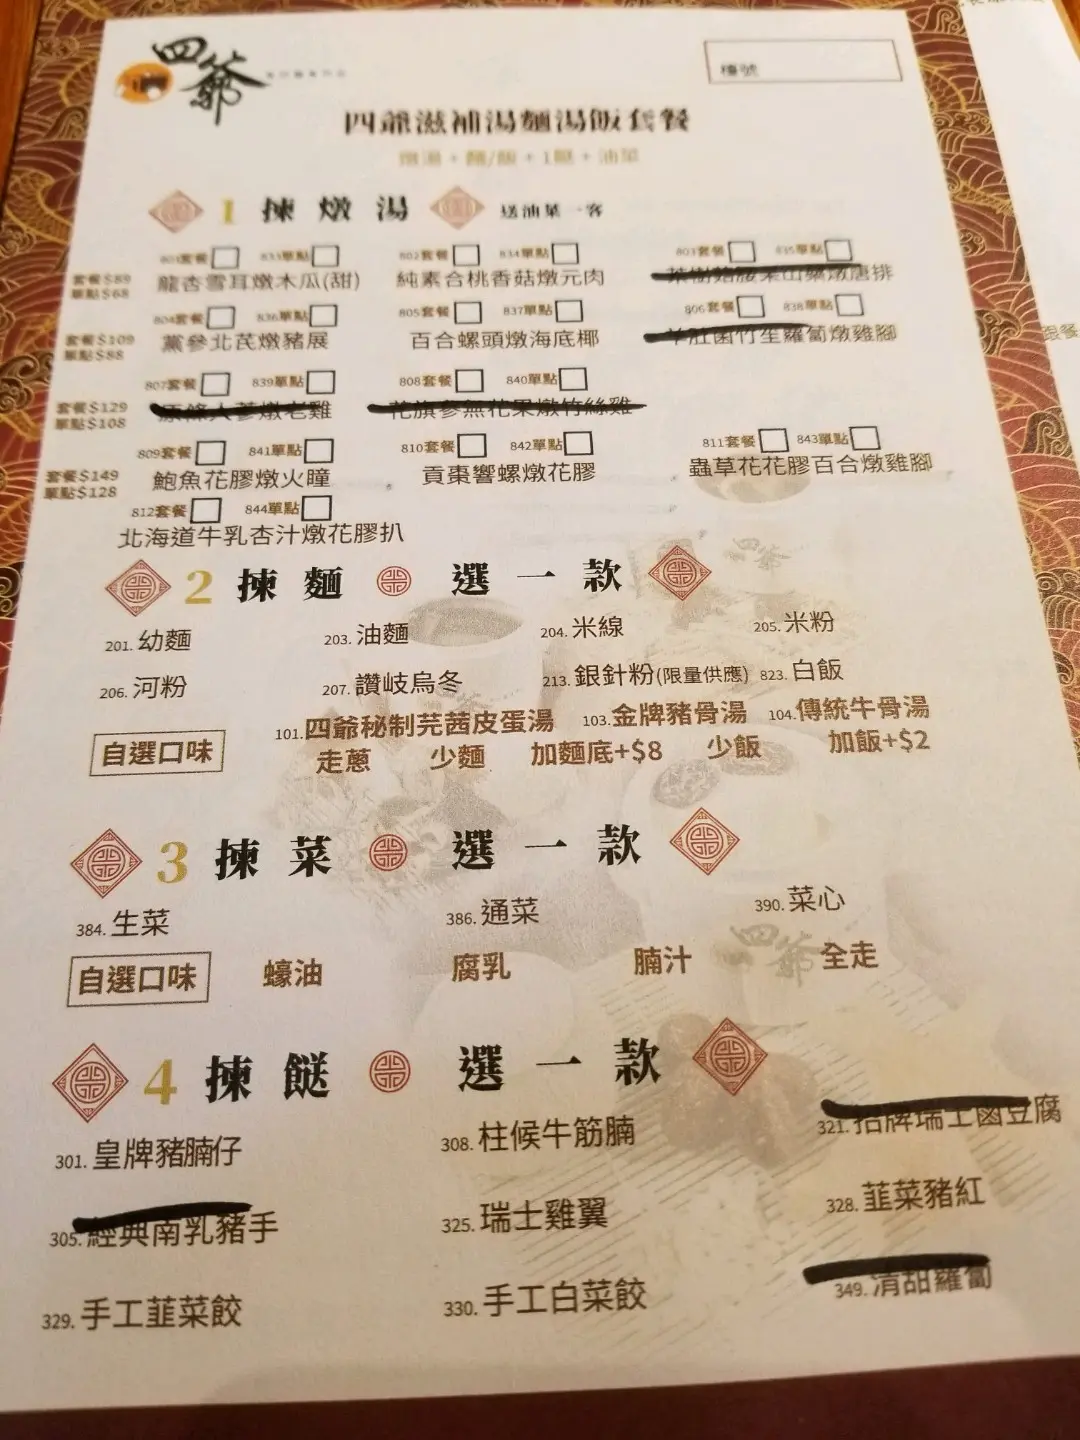 四爺
檯號
四爺滋補湯麵湯飯套餐
燉湯+麵/飯+1餸+油菜
1 揀燉湯 送油菜一客
801套餐 833單點 802套餐 834單點 803套餐 835單點
套餐$89
單點$68
龍杏雪耳燉木瓜(甜) 純素合桃香菇燉元肉 茶樹菇腰果山藥燉唐排
804套餐 836單點 805套餐 837單點 806套餐 838單點
套餐$109
單點$88
黨參北芪燉豬展 百合螺頭燉海底椰 羊肚菌竹笙蘿蔔燉雞腳
807套餐 839單點 808套餐 840單點
套餐$129
單點$108
原條人參燉老雞 花旗參無花果燉竹絲雞
809套餐 841單點 810套餐 842單點 811套餐 843單點
套餐$149
單點$128
鮑魚花膠燉火瞳 貢棗響螺燉花膠 蟲草花花膠百合燉雞腳
812套餐 844單點
北海道牛乳杏汁燉花膠扒
2 揀麵 選一款
201. 幼麵 203. 油麵 204. 米線 205. 米粉
206. 河粉 207. 讚岐烏冬 213. 銀針粉(限量供應) 823. 白飯
101. 四爺秘制芫茜皮蛋湯 103. 金牌豬骨湯 104. 傳統牛骨湯
自選口味 走蔥 少麵 加麵底+$8 少飯 加飯+$2
3 揀菜 選一款
384. 生菜 386. 通菜 390. 菜心
自選口味 蠔油 腐乳 腩汁 全走
4 揀餸 選一款
301. 皇牌豬腩仔 308. 柱候牛筋腩 321. 招牌瑞士鹵豆腐
305. 經典南乳豬手 325. 瑞士雞翼 328. 韮菜豬紅
329. 手工韮菜餃 330. 手工白菜餃 349. 清甜蘿蔔
跟餐